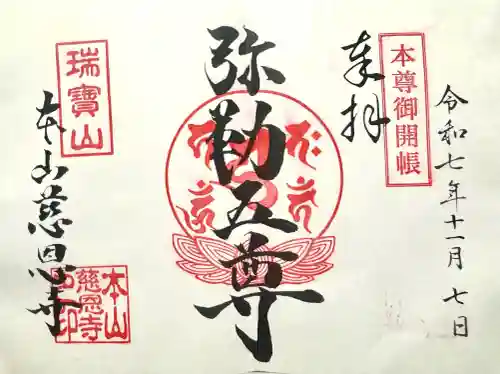 令和七年十一月七日
本尊御開帳
奉拝
弥勒五尊
瑞寳山
本山慈恩寺
本山慈恩寺印